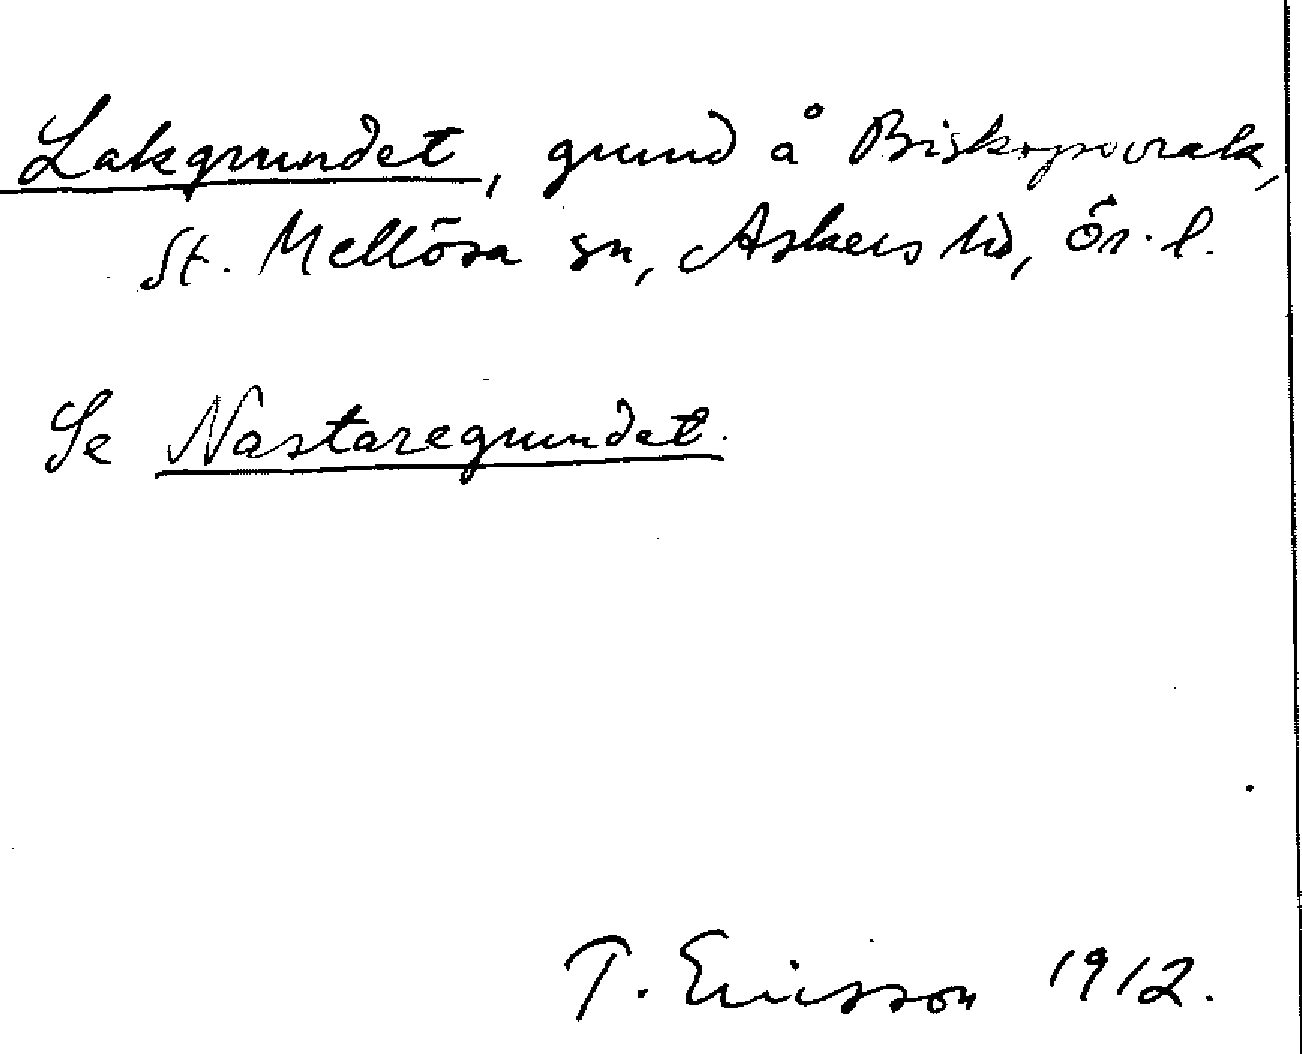 Lakgrundet, grund å Biskopsvrak,
St. Mellösa sn, Askers hd, Ör. l.
Se Nastaregrundet.
T. Ericsson 1912.